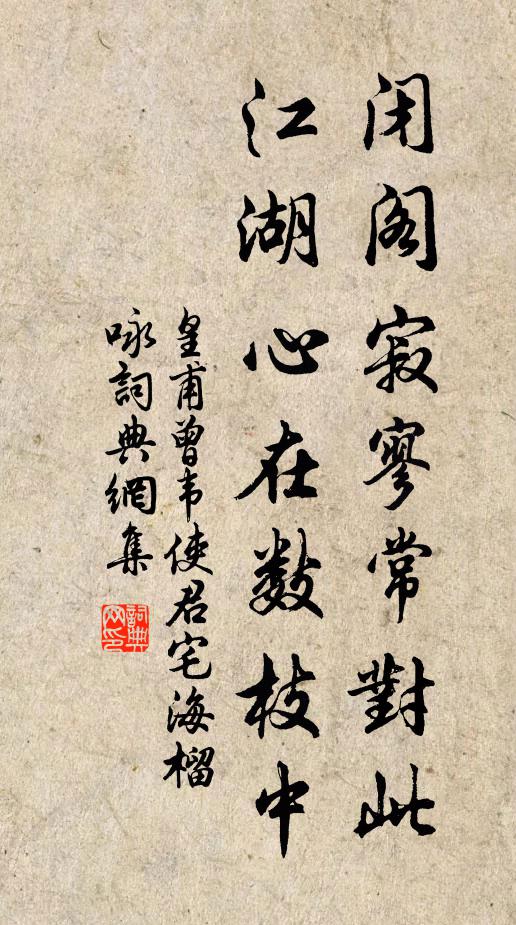 闭阁寂寥常對此
江湖心在数枝中
皇甫曾韦使君宅海榴
咏詞典網集
詞典
网印